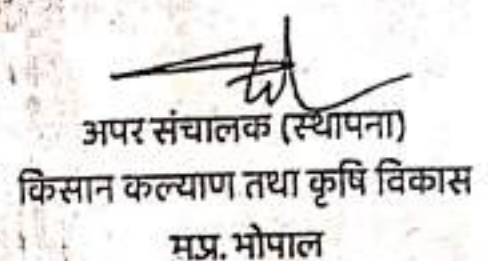 अपर संचालक (स्थापना)
किसान कल्याण तथा कृषि विकास
मप्र. भोपाल